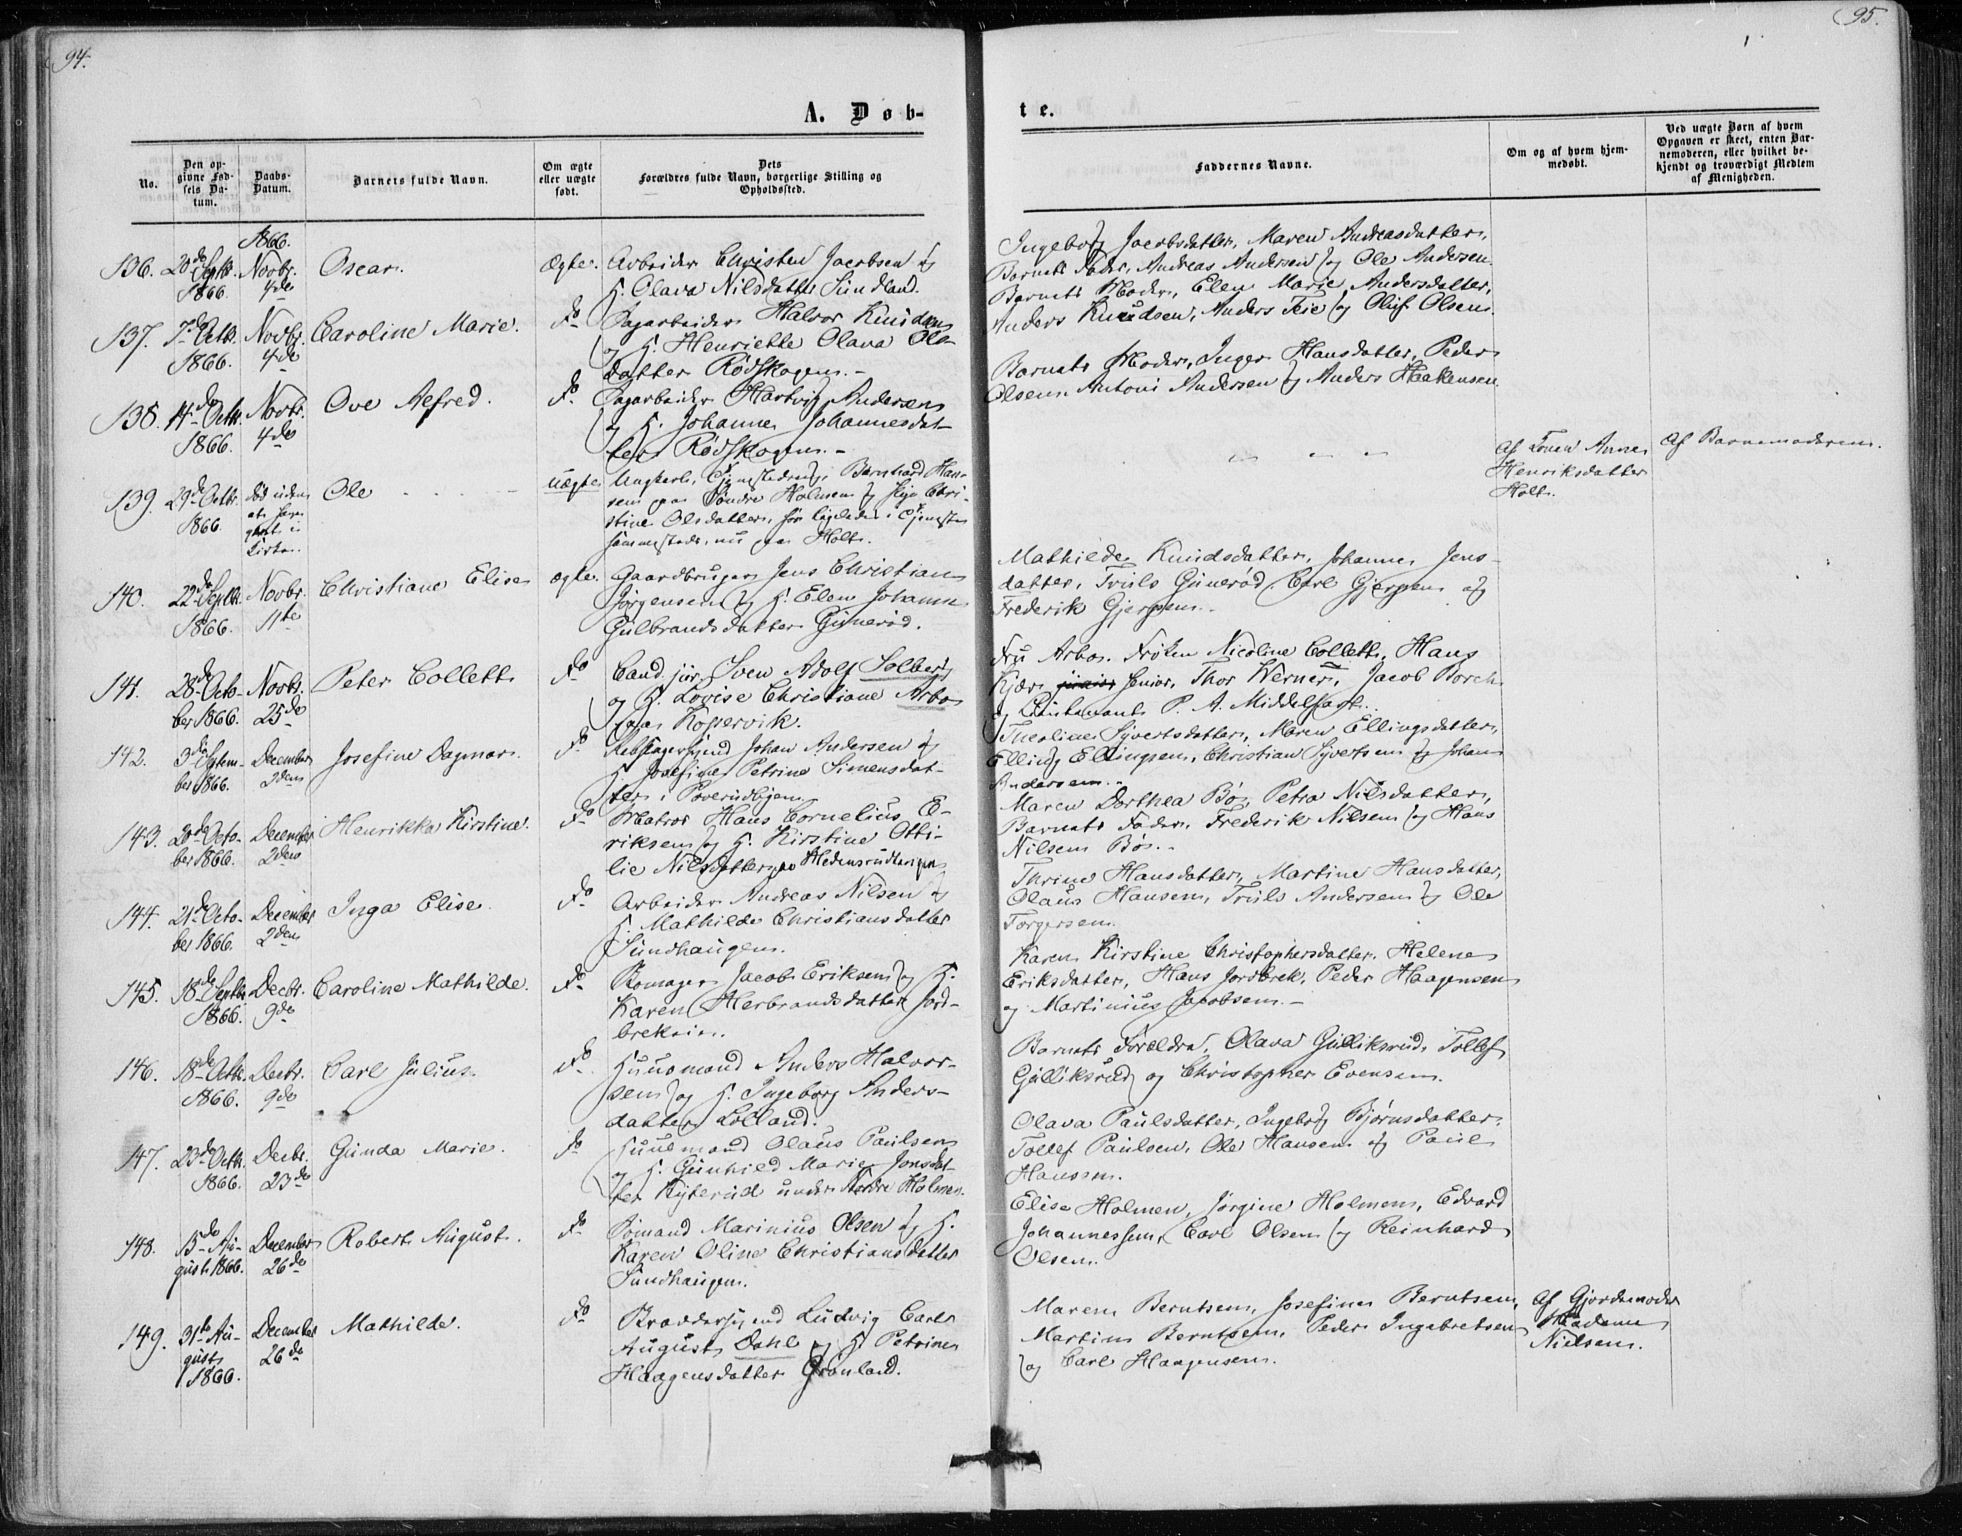 94.
95.
A. Døb-
te.
No.
Den op-
givne Fød-
sels Da-
tum.
Daabs-
Datum.
Barnets fulde Navn.
Om ægte
eller uægte
født.
Dets
Forældres fulde Navn, borgerlige Stilling og
Opholdssted.
Faddernes Navne.
Om og af hvem hjem-
medøbt.
Ved uægte Børn af hvem
Opgaven er skeet, enten Bar-
nemoderen, eller hvilket be-
kjendt og troværdigt Medlem
af Menigheden.
136.
20de Septb.
1866.
1866.
Novbr.
4de
Oscar.
Ægte.
Arbeider Christen Jacobsen og
H. Olava Nilsdatter Sundland.
Ingeborg Jacobsdatter, Maren Andreasdatter,
Barnets Fader, Andreas Andersen og Ole Andersen.
137.
7de Octb.
1866.
Novbr.
4de
Caroline Marie.
do
Sagarbeider Halvor Knudsen
og H. Henriette Olava Ols-
datter Rødskogen.
Barnets Moder, Elen Marie Andersdatter,
Anders Knudsen, Anders Teie og Oluf Olsen.
138.
14de Octb.
1866.
Novbr.
4de
Ove Alfred.
do
Sagarbeider Hartvig Andersen
og H. Johanne Johannesdat-
ter Rødskogen.
Barnets Moder, Inger Hansdatter, Peder
Olsen, Antoni Andersen og Anders Haakensen.
139.
29de Octb.
1866.
død uden
at
i
Kirken.
Ole
uægte
Ungkarl, Bernhard Han-
sen paa Søndre Holmen og Pige Chri-
stine Olsdatter,
sammesteds, nu paa Holt.
Af Konen Anne
Henriksdatter
Holt.
Af Barnemoderen.
140.
22de Septb.
1866.
Novbr.
11te
Christiane Elise
ægte.
Gaardbruger Jens Christian
Jørgensen og H. Elen Johanne
Gulbrandsdatter Gunerød.
Mathilde Knudsdatter, Johanne Jens-
datter, Truls Gunerød, Carl Gjerpen og
Frederik Gjerpen.
141.
28de Octo-
ber 1866.
Novbr.
25de
Peter Collett
do
Cand. jur. Sven Adolf Solberg
og H. Lovise Christiane Arbo
paa Kopervik.
Fru Arbo, Frøken Nicoline Collett, Hans
Kjær senior, Thor Werner, Jacob Borch
og Lieutenant P. A. Middelfart.
142.
3de Septem-
ber 1866.
December
2den
Josefine Dagmar.
do
Rebslagersvend Johan Andersen og
H. Josefine Petrine Simensdat-
ter i Poverudbyen.
Theoline Syvertsdatter, Maren Ellingsdatter,
Elling Ellingsen, Christian Syvertsen og Johan
Andersen.
143.
20de Octo-
ber 1866.
December
2den
Henrikka Kirstine.
do
Matros Hans Cornelius E-
riksen og H. Kirstine Otti-
lie Nilsdatter paa Hedensrudtangen
Maren Dorthea Bø, Petra Nilsdatter,
Barnets Fader, Frederik Nilsen og Hans
Nilsen Bø.
144.
21de Octo-
ber 1866.
December
2den
Inga Elise.
do
Arbeider Andreas Nilsen og
H. Mathilde Christiansdatter
Sundhaugen.
Thrine Hansdatter, Martine Hansdatter,
Olaus Hansen, Truls Andersen og Ole
Torgersen.
145.
18de Septb.
1866.
Decbr.
9de
Caroline Mathilde.
do
Skomager Jacob Eriksen og H.
Karen Herbrandsdatter Jord-
brekeie.
Karen Kirstine Christophersdatter, Helene
Eriksdatter, Hans Jordbrek, Peder Haagensen
og Martinius Jacobsen.
146.
18de Octb.
1866.
Decbr.
9de
Carl Julius.
do
Huusmand Anders Halvor-
sen og H. Ingeborg Anders-
datter Lolland.
Barnets Forældre, Olava Gulliksrud, Tollef
Gulliksrud og Christopher Evensen.
147.
23de Octb.
1866.
Decbr.
23de
Gunda Marie.
do
Huusmand Olaus Paulsen
og H. Gunhild Marie Jonsdat-
ter Hyterud under Nordre Holmen.
Olava Paulsdatter, Ingeborg Bjørnsdatter,
Tollef Paulsen, Ole Hansen og Paul
Hansen.
148.
15de Au-
gust 1866.
December
26de
Robert August.
do
Sømand Marinius Olsen og H.
Karen Oline Christiansdatter
Sundhaugen.
Elise Holmen, Jørgine Holmen, Edvard
Johannessen, Carl Olsen og Reinhard
Olsen.
149.
31te Au-
gust
1866.
December
26de
Mathilde.
do
Ludvig Carl
August Dahl og H. Petrine
Haagensdatter Grønland.
Maren Berntsen, Josefine Berntsen,
Martin Berntsen, Peder Ingebretsen
og Carl Haagensen.
Af Gjordemoder
Madame
Nielsen.